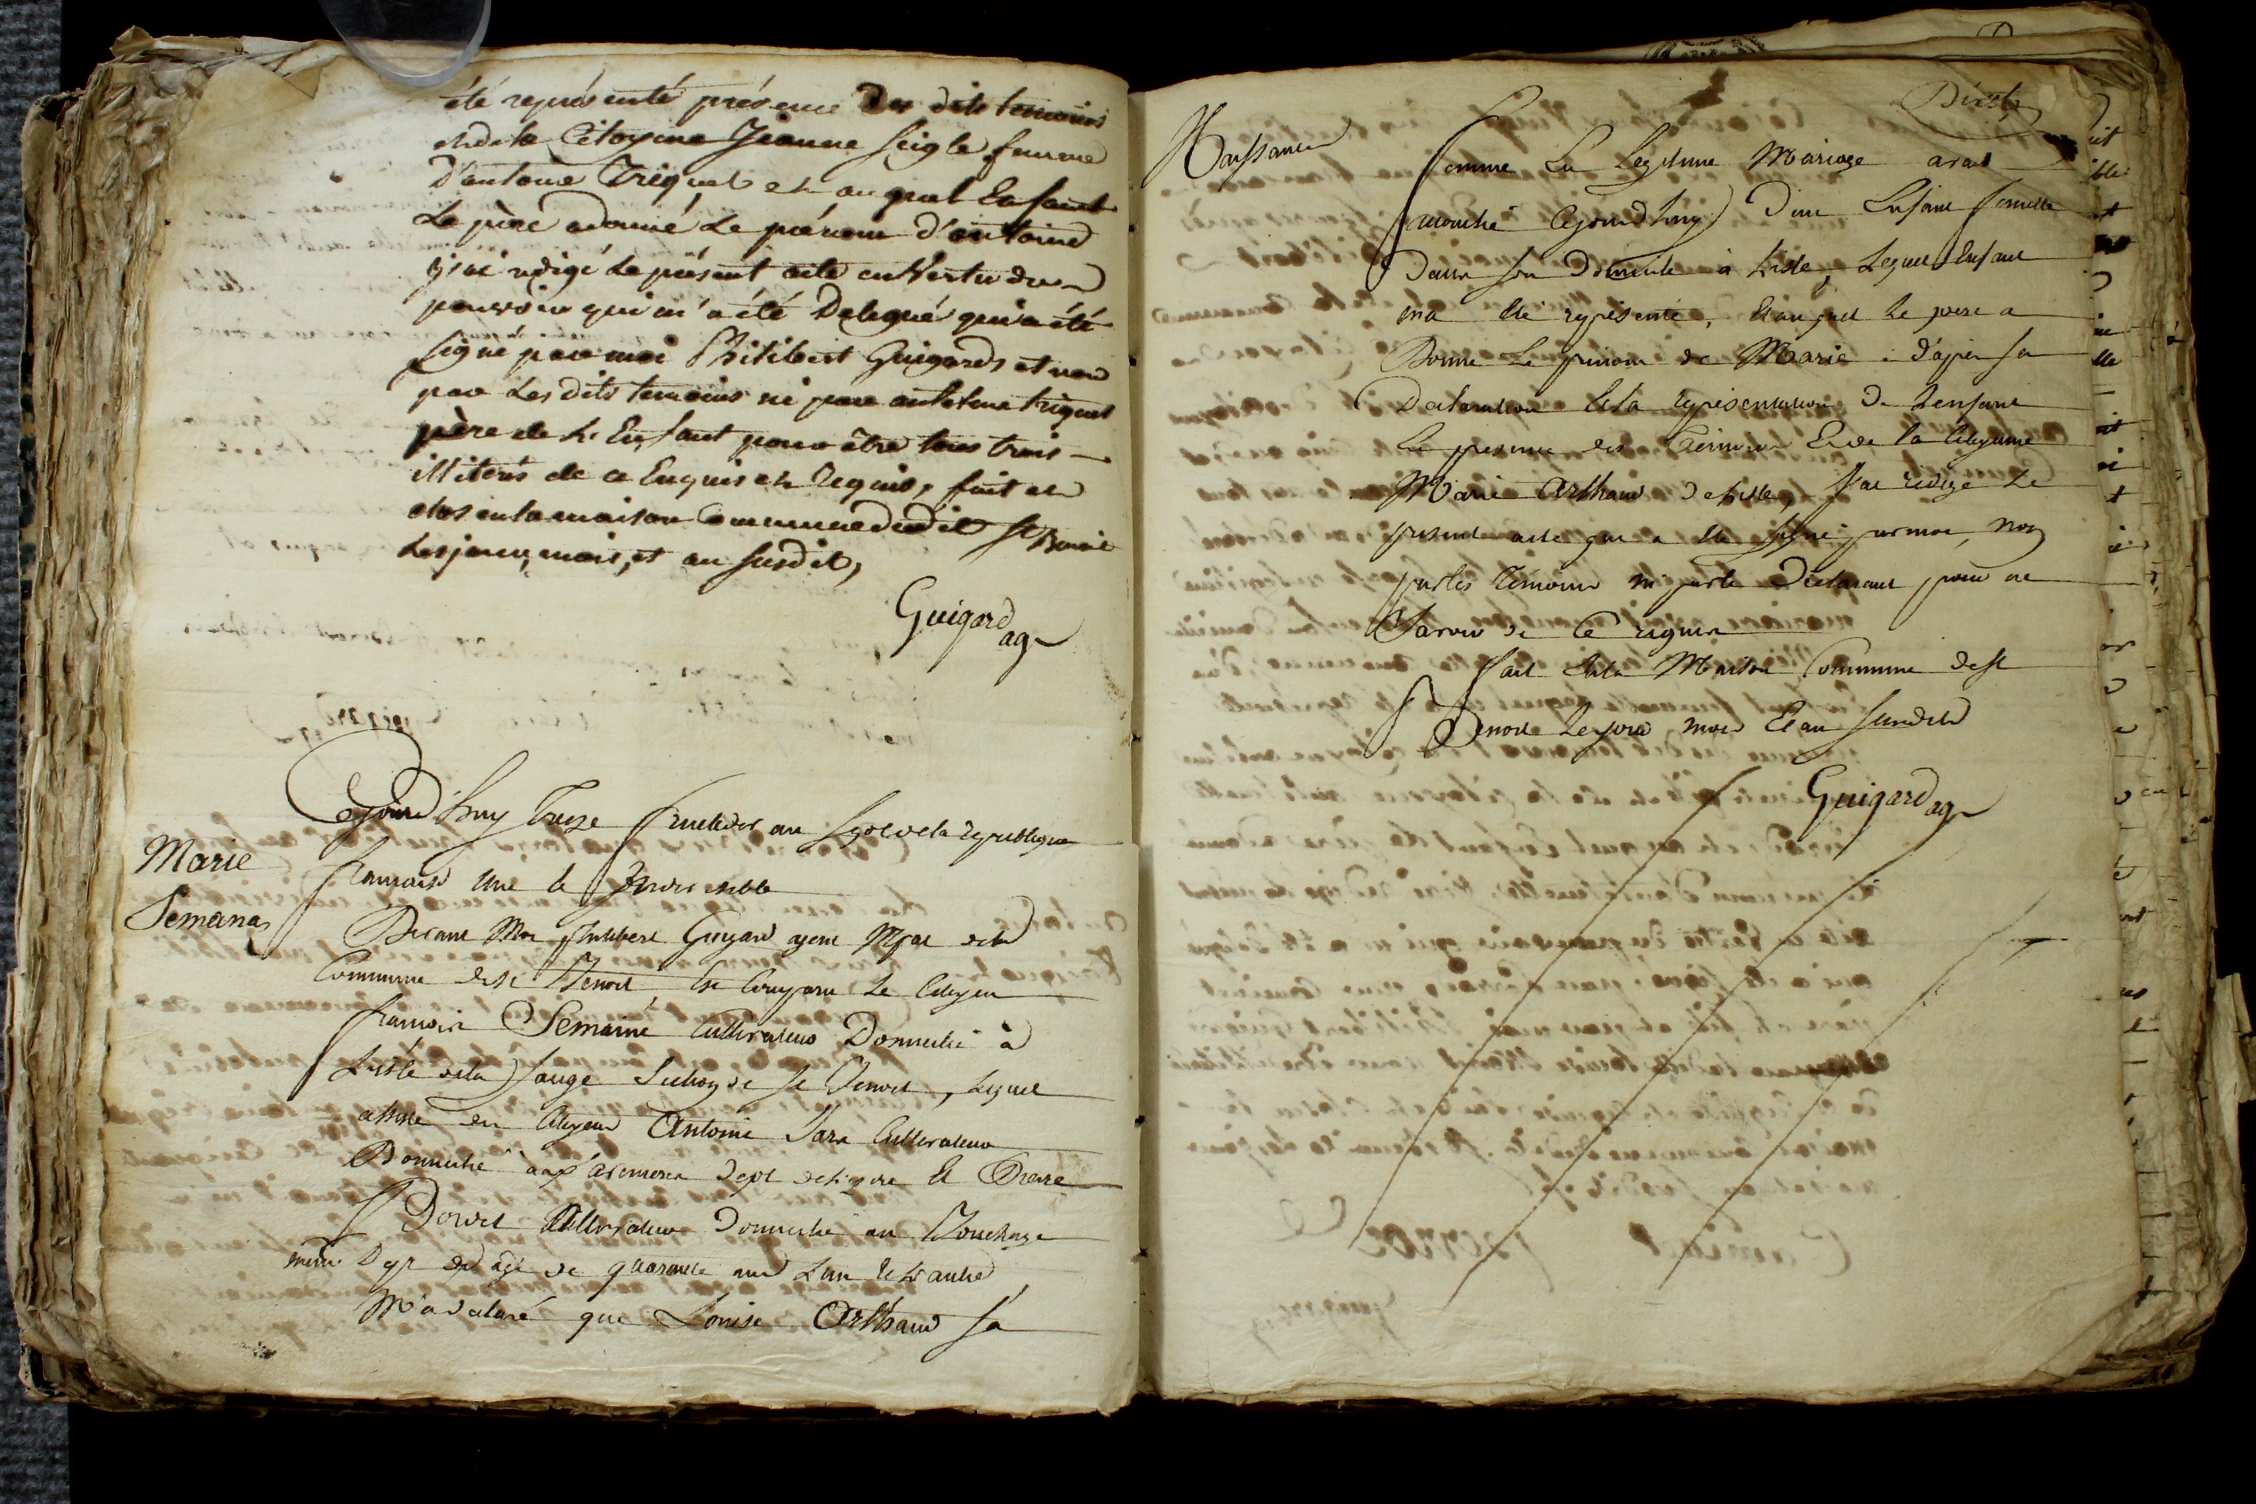 été représenté présence des dits temoins
et de la Citoyenne Jeanne Seigle femme
D'antoine Triquet et au quel Enfant
Le père a donné Le prénom d'antoine
j'ai redigé Le présent acte en Vertu du
pouvoir qui m'a été Delegué qui a été
signé par moi Philibert Guigard et non
par Les dits temoins ni par antoine triquet
père de L'Enfant pour être tous trois
illiterés de ce Enquis et Requis, fait et
clos en la maison Commune dudit St Benoit
Les jour, mois, et an susdit,
Guigard ag
Marie
Semanas
Cejourd'huy Treze fructidor an Sept de la republique
francaise une & Indivisible
Devant Moi Philibert Guigard agent Mpal de la
Commune de St Benoit Est Comparu Le Citoyen
francois Semaine Cultivateur Domicilié à
Liste de la Sauge Section de St Benoit, Lequel
assisté du Citoyen Antoine Cultivateur
Domicilié dept et Pierre
Cultivateur Domicilié au Bouchage
même Dept agé de quarante ans L'un & L'autre
M'a declaré que Louise Arthaud sa
Naissance
Dixs
femme En Legitime Mariage avait
accouché Cejourd'huy D'un Enfant femelle
Dans son Domicile à Liste, Lequel Enfant
m'a été représenté, Et auquel Le pere a
Donné Le prénom de Marie : d'après sa
Declaration & la représentation de L'enfant
En presence des Temoins Et de la Citoyenne
Marie Arthaud de Liste, J'ai redigé Le
present acte qui a été signé par moi, Non
par les temoins ni par le Declarant pour ne
Savoir de Ce requis
fait En la Maison Commune de St
Benoit Les jour mois Et an susdits
Guigard ag